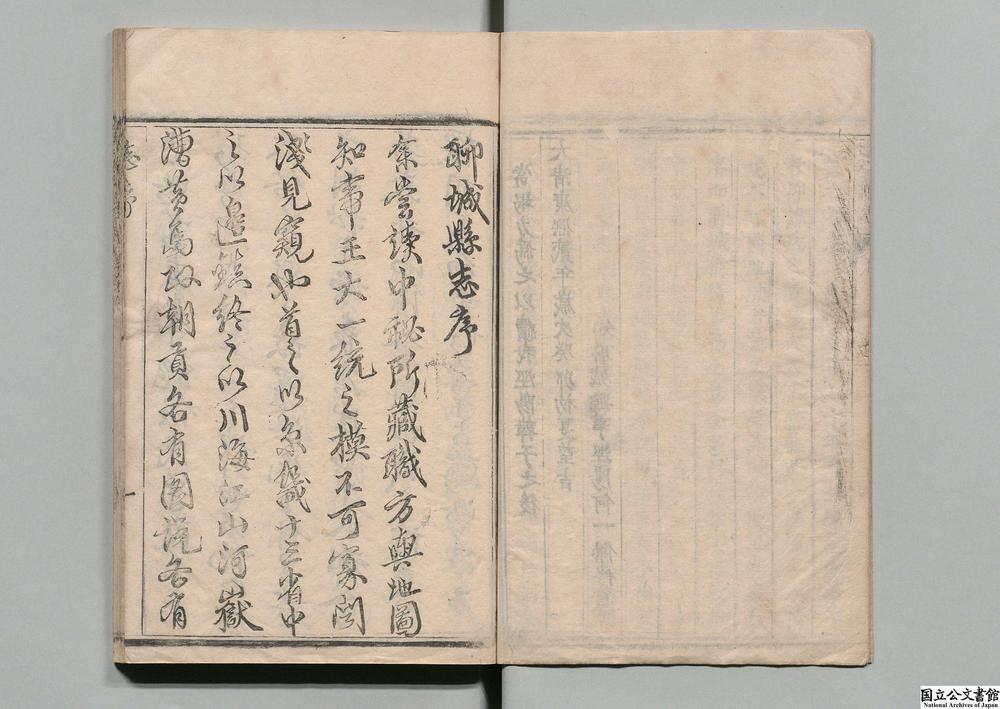 聊城縣志序
余嘗讀中秘所藏職方輿地圖
知帝王大一統之模不可寡聞
淺見窺也首之以京畿十三省中
之以邊鎮終之以川海江山河嶽
漕黃島夷朝貢各有圖說各有
志序
一
国立公文書館
National Archives of Japan